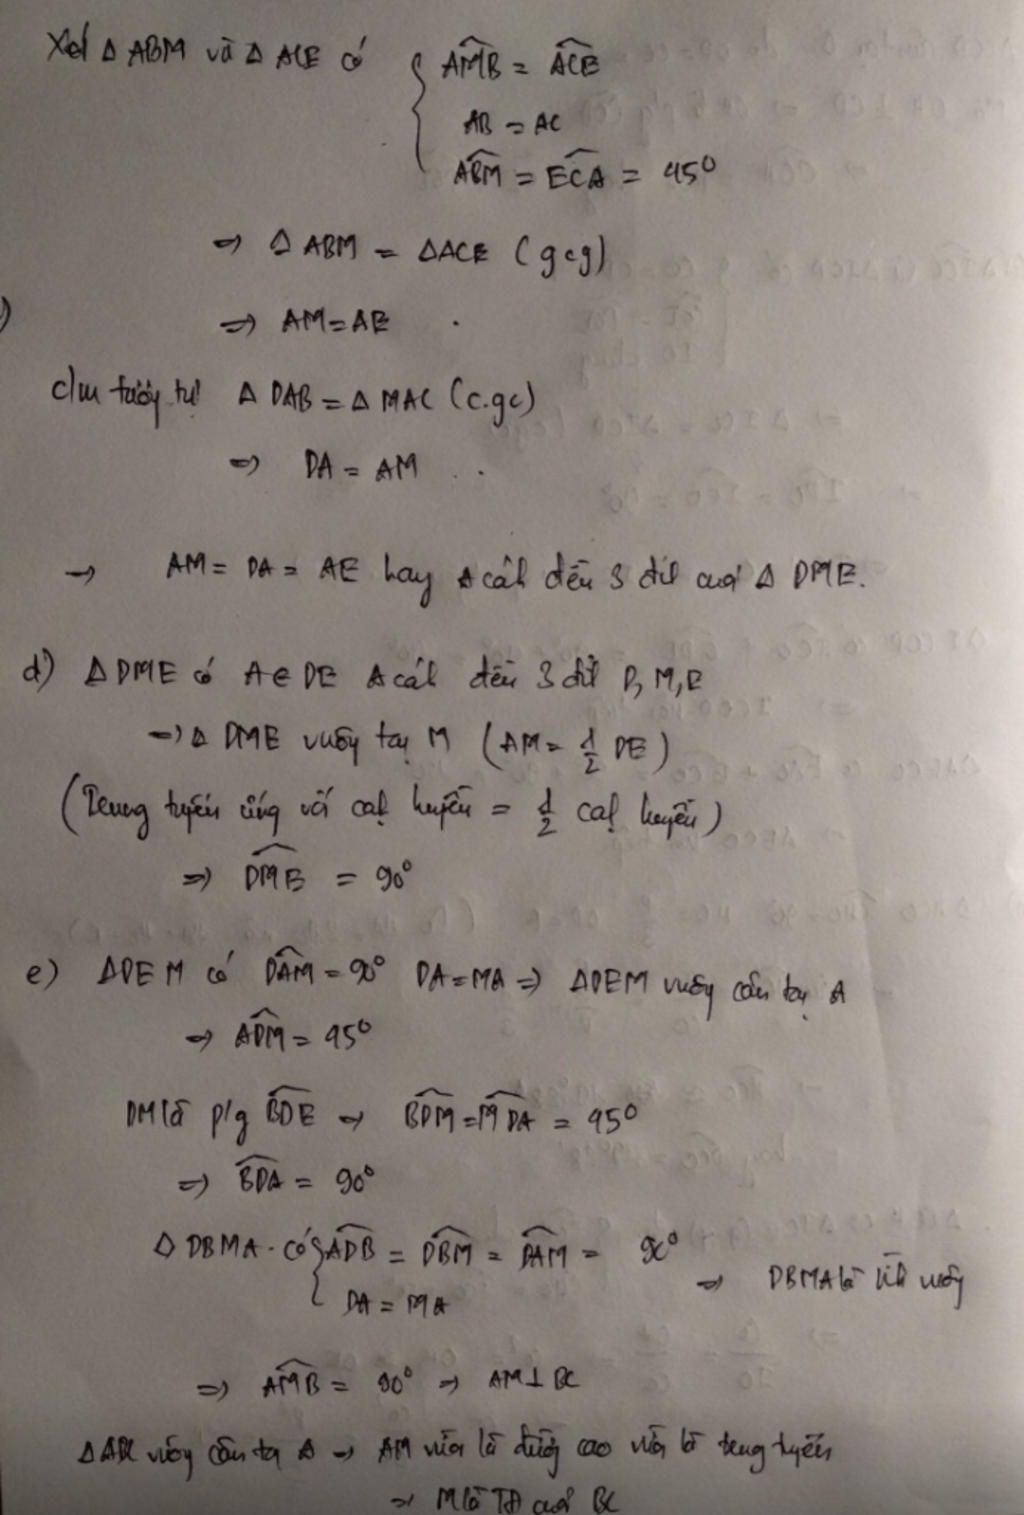 Xét Δ ABM và Δ ACE có { AMB = ACE
AB = AC
ABM = ECA = 45°
=> Δ ABM = ΔACE (gcg)
=> AM = AE
c/m tương tự Δ DAB = Δ MAC (c.gc)
=> DA = AM
→ AM = DA = AE hay A cách đều 3 đỉnh của Δ DME.
d) Δ DME có A ∈ DE A cách đều 3 đỉnh D, M, E
=> Δ DME vuông tại M (AM = 1/2 DE)
(Trung tuyến ứng với cạnh huyền = 1/2 cạnh huyền)
=> DME = 90°
e) ΔDEM có DAM = 90° DA = MA => ΔDEM vuông cân tại A
=> ADM = 45°
DM là p/g BDE => BDM = MDA = 45°
=> BDA = 90°
Δ DBMA. có { ADB = DBM = DAM = 90°
DA = MA => DBMA là Vh vuông
=> AMB = 90° => AM⊥BC
ΔABC vuông cân tại A => AM vừa là đường cao vừa là trung tuyến
=> M là TĐ của BC